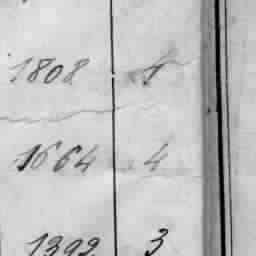 1808 4
1664 4
1392 3